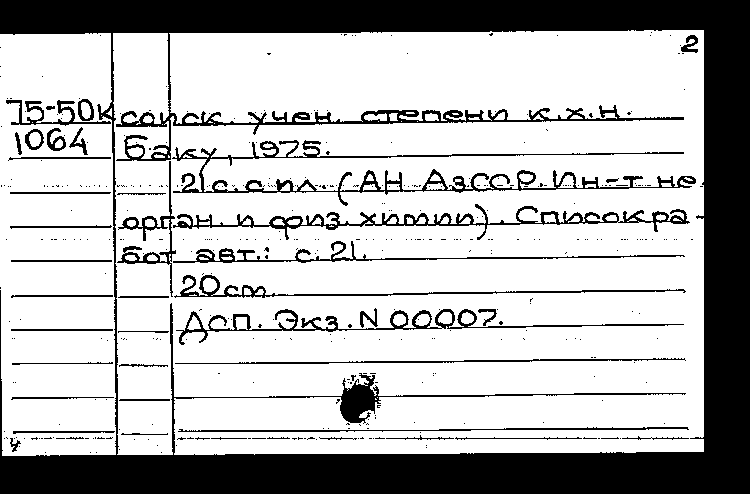 2
75-50к соиск. учен. степени к.х.н.
1064 Баку, 1975.
21с. с ил. (АН АзССР. Ин-т не
орган. и физ. химии). Список ра-
бот авт.: с. 21.
20 см.
ДСП. Экз. N 00007.